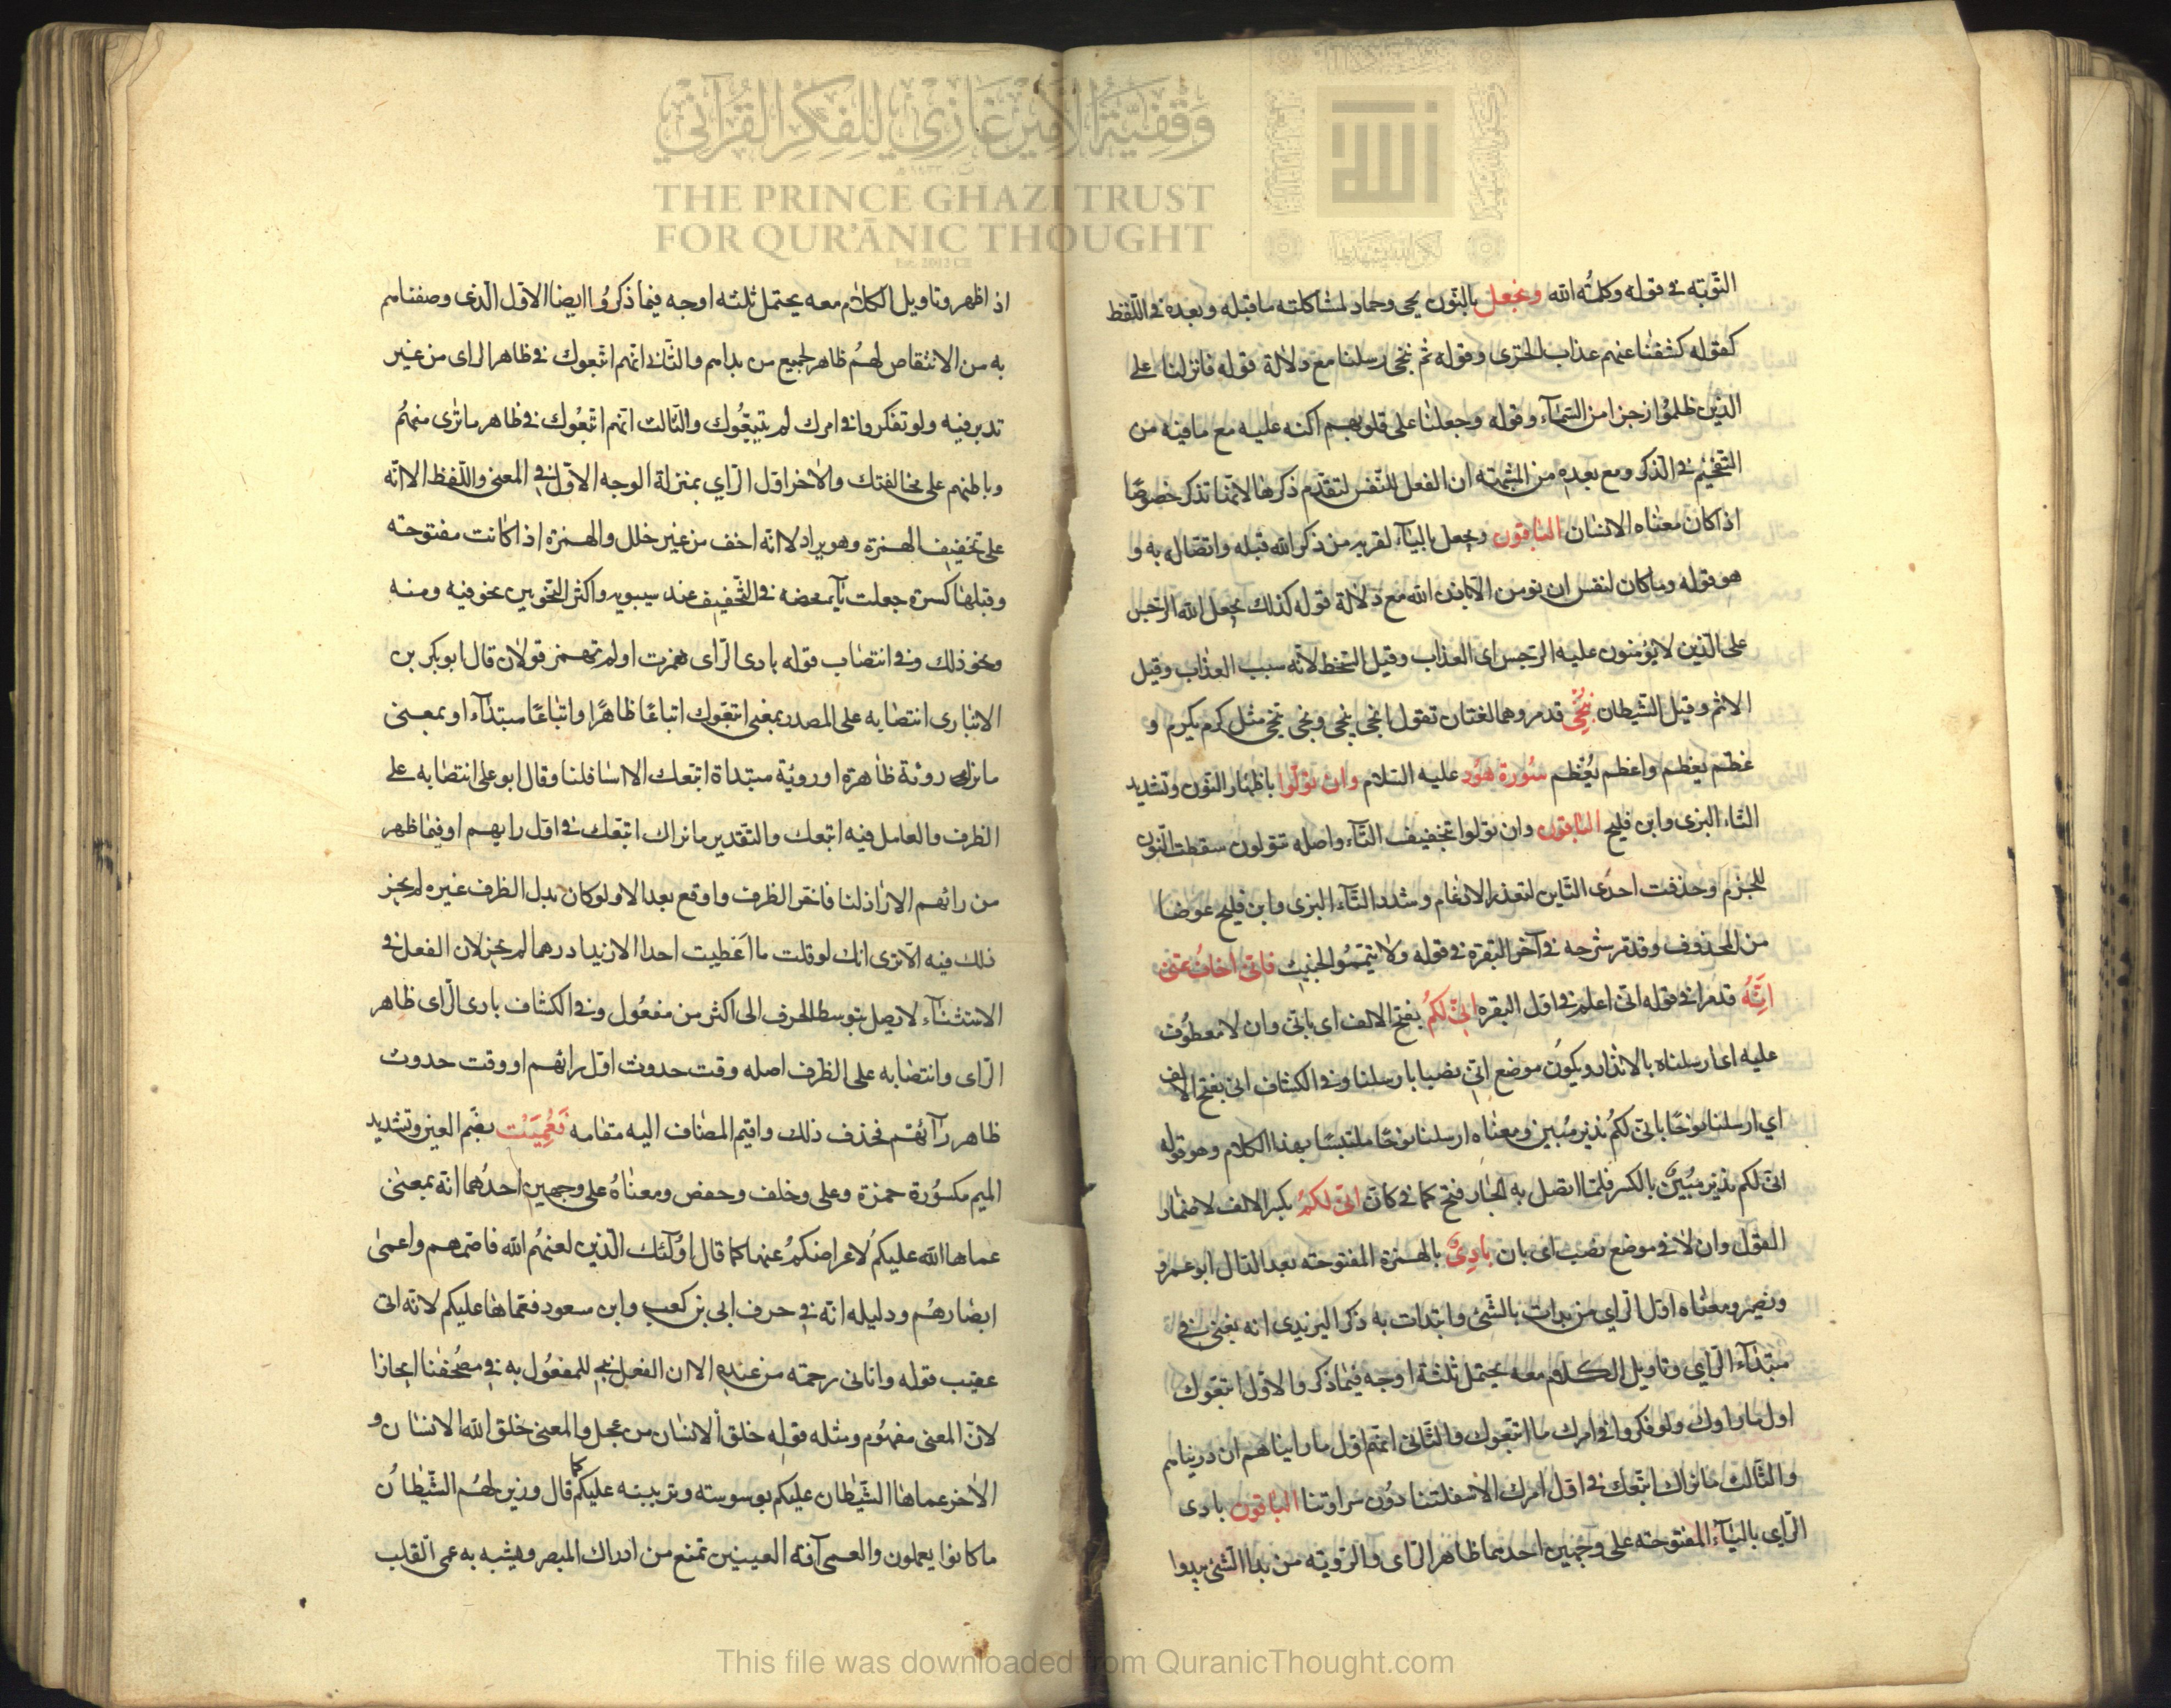 وقفية الأمير غازي للفكر القرآني
THE PRINCE GHAZI TRUST
FOR QUR'ĀNIC THOUGHT
Est. 2012 CE
التوبة في قوله وكلمة الله ونجعل بالنون يحيى وحماد لمشاكلته ما قبله وبعده في اللفظ
كقوله كشفنا عنهم عذاب الخزى وقوله ثم ننجى رسلنا مع دلالة قوله فانزلنا على
الذين ظلموا زجزا من السماء وقوله وجعلنا على قلوبهم اكنه عليه مع ما فيه من
التفخيم في الذكر ومع بعده من الشبهته ان الفعل للنفس لتقدم ذكرها لانها تذكر خصوصا
اذا كان معناه الانسان الباقون ويجعل بالياء لقربه من ذكر الله قبله واتصاله به و
هو قوله وما كان لنفس ان تومن الا باذن الله مع دلالة قوله كذلك يجعل الله الرجس
على الذين لا يؤمنون عليه الرجس اى العذاب وقيل السخط لانه سبب العذاب وقيل
الاثم وقيل الشيطان ننجي قدمر وهما لغتان تقول انجى ينجى ونجى ينجى مثل كرم يكرم و
عظم يعظم واعظم يُعظم سورة هود عليه السلام وان تولوا باظهار النون وتشديد
التاء البزى وابن فليح الباقون وان تولوا بتخفيف التاء واصله تتولون سقطت النون
للجزم وحذفت احدى التاين لتعذر الادغام وشدد التاء البزى وابن فليح عوضا
من المحذوف وقدمر شرحه في آخر البقرة في قوله ولا تيمموا الخبيث فانى اخاف عنى
انه قدمر في قوله انى اعلم في اول البقره انى لكم بفتح الالف اى بانى وان لا معطوف
عليه اى ارسلناه بالانذار ويكون موضع انى نصبا بارسلنا وفي الكشاف انى بفتح الالف
اي ارسلنا نوحا بانى لكم نذير مبين ومعناه ارسلنا نوحا ملتبسا بهذا الكلام وهو قوله
انى لكم نذير مبين بالكسر فلما اتصل به الجار فتح كما في كان انى لكم بكسر الالف لاضمار
القول وان لا في موضع نصب اى بان بادئ بالهمزة المفتوحته بعد الدال ابو عمرو
ونصير ومعناه اول الراي من بدات بالشئ وابتدات به ذكر اليزيدى انه يعنى في
مبتداء الراي وتاويل الكلام معه يحتمل ثلثة اوجه فيما ذكر والاول اتبعوك
اول ما راوك ولو فكروا في امرك ما اتبعوك والثانى انهم اول ما رايناهم ان دريناهم
والثالث ما نراك اتبعك في اول امرك الا سفلتنا دون سراوتنا الباقون بادى
الراى بالياء المفتوحته على وجهين احدهما ظاهر الراى والرويته من بدا الشئ يبدوا
اذ اظهر وتاويل الكلام معه يحتمل ثلثه اوجه فيما ذكروا ايضا الاول الذى وصفناهم
به من الانتقاص لهم ظاهر لجميع من بداهم والثانى انهم اتبعوك في ظاهر الراى من غير
تدبر فيه ولو تفكروا في امرك لم يتبعوك والثالث انهم اتبعوك في ظاهر ما ترى منهم
وباطنهم على مخالفتك والاخر اول الراي بمنزلة الوجه الاول في المعنى واللفظ الا انه
على تخفيف الهمزة وهو يراد لا انه اخف من غير خلل والهمزة اذا كانت مفتوحته
وقبلها كسرة جعلت ياء محضه في التخفيف عند سيبويه واكثر النحويين نحو فيه ومنه
ونحو ذلك وفي انتصاب قوله بادى الراى همزت اولم تهمز قولان قال ابو بكر بن
الانبارى انتصابه على المصدر بمعنى اتبعوك اتباعا ظاهرا واتباعا مبتداء او بمعنى
ما نراك روئة ظاهرة اوروية مبتداة اتبعك الا اسافلنا وقال ابو على انتصابه على
الظرف والعامل فيه اتبعك والتقدير ما نراك اتبعك في اول رايهم او فيما ظهر
من رائهم الا اراذلنا فاخر الظرف واوقع بعد الا ولو كان بدل الظرف غيره لم يجز
ذلك فيه الا ترى انك لو قلت ما اعطيت احدا الا زيدا درهما لم يجز لان الفعل في
الاستثناء لا يصل بتوسط الحرف الى اكثر من مفعول وفي الكشاف بادى الراى ظاهر
الراى وانتصابه على الظرف اصله وقت حدوث اول رائهم او وقت حدوث
ظاهر رآئهم فحذف ذلك واقيم المضاف اليه مقامه فعميت بضم العين وتشديد
الميم مكسورة حمزة وعلى وخلف وحفص ومعناه على وجهين احدهما انه بمعنى
عماها الله عليكم لاعراضكم عنها كما قال اولئك الذين لعنهم الله فاصمهم واعمى
ابصارهم ودليله انه في حرف ابى بن كعب وابن سعود فعماها عليكم لانه اتى
عقيب قوله واتانى رحمته من عنده الا ان الفعل نجى للمفعول به في مصحفنا ايجازا
لان المعنى مفهوم ومثله قوله خلق الانسان من عجل والمعنى خلق الله الانسان و
الاخر عماها الشيطان عليكم بوسوسته وتزيينه عليكم كما قال وزين لهم الشيطان
ما كانوا يعملون والعمى آفة العينين تمنع من ادراك المبصر ويشبه به عمى القلب
This file was downloaded from QuranicThought.com